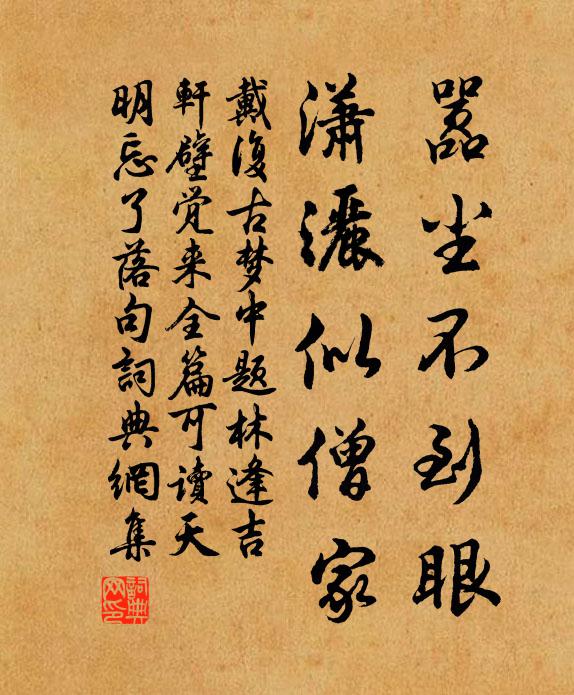 嚣尘不到眼
瀟灑似僧家
戴復古梦中题林逢吉
軒壁觉来全篇可讀天
明忘了落句詞典網集
詞典网印